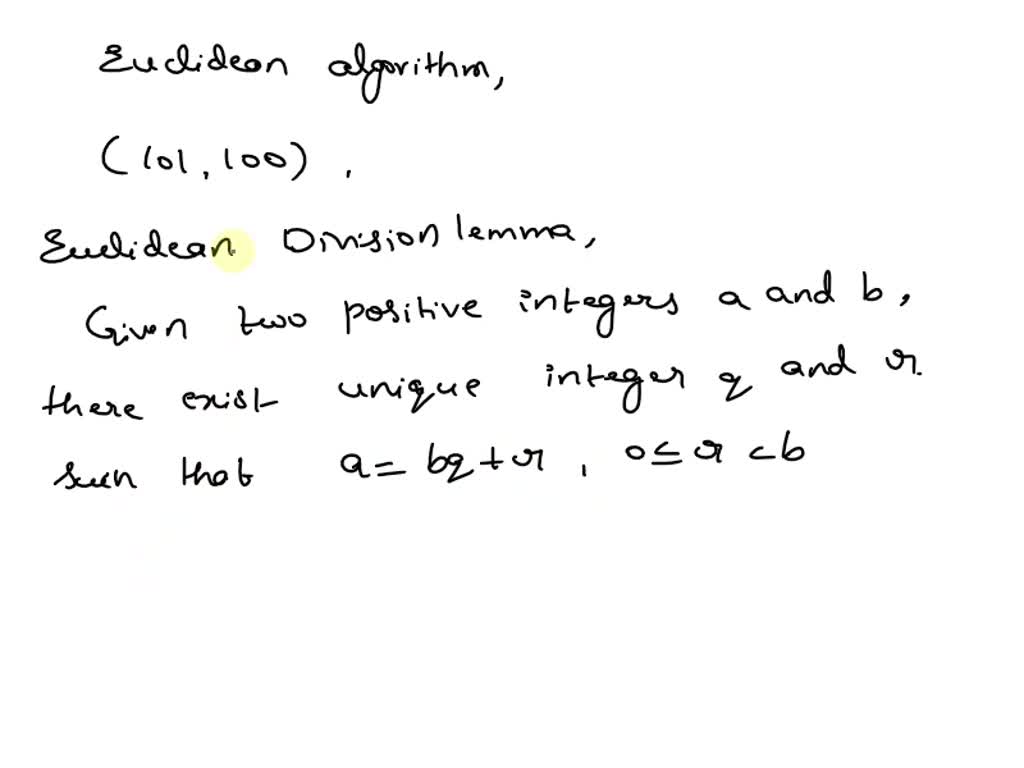 Euclidean algorithm,
(101, 100).
Euclidean Division lemma,
Given two positive integers a and b,
there exist unique integer q and r.
such that a = bq + r, 0 ≤ r < b